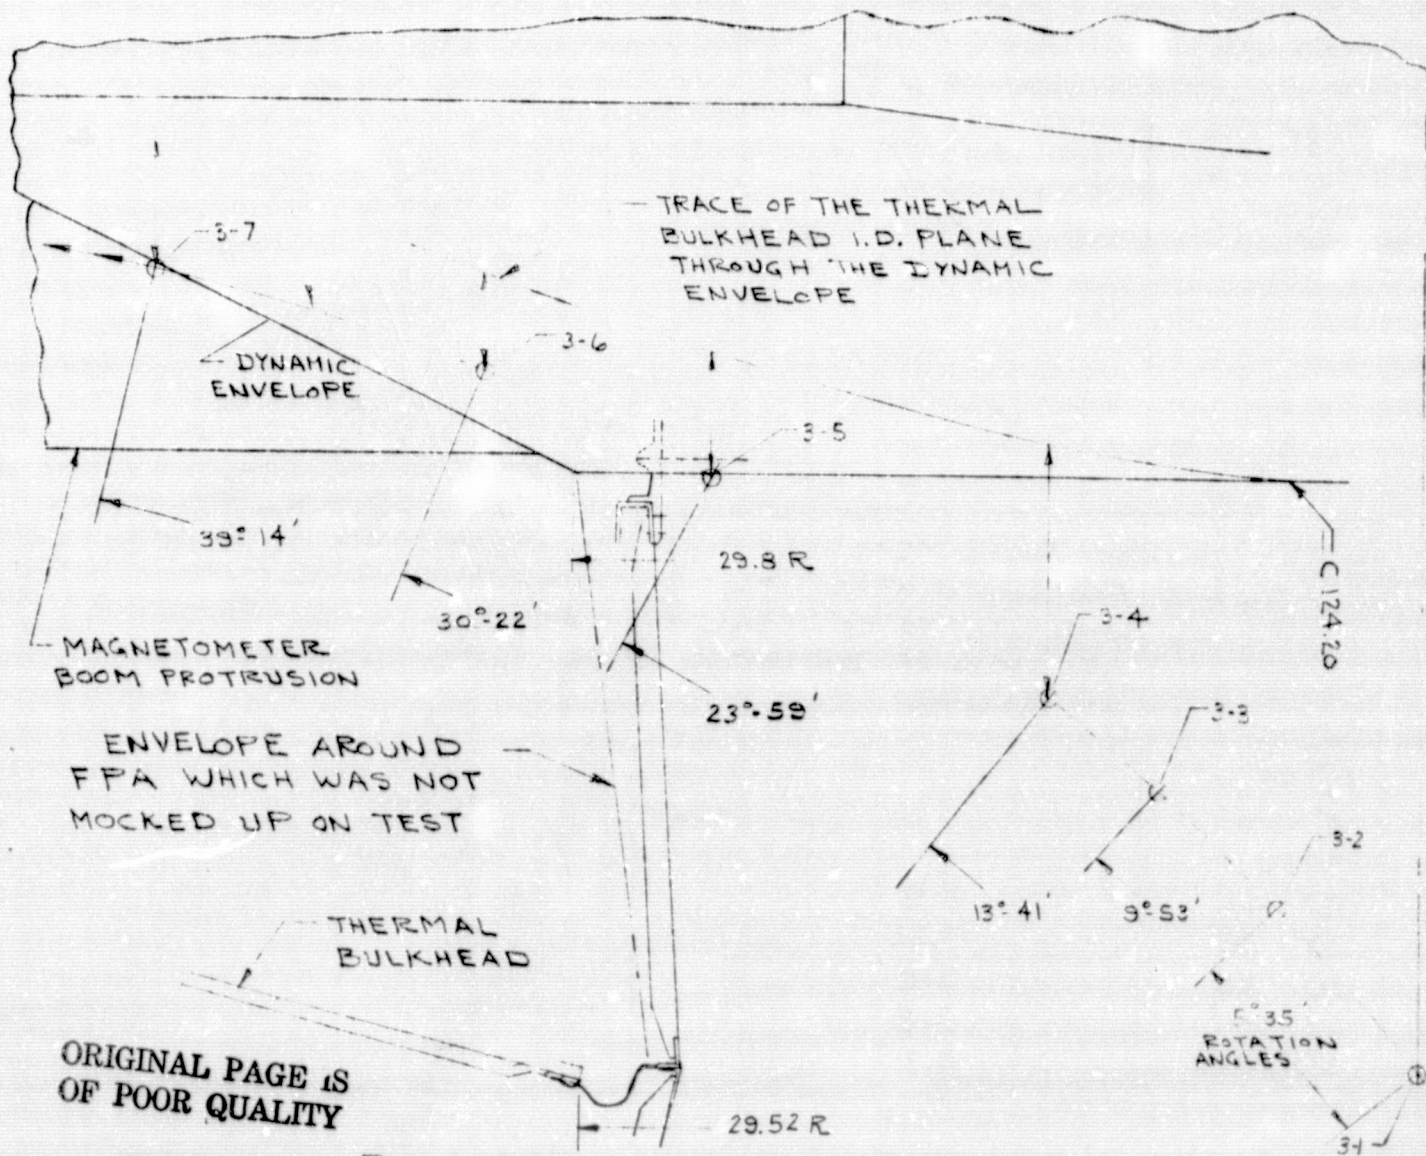 3-7
TRACE OF THE THERMAL
BULKHEAD I.D. PLANE
THROUGH THE DYNAMIC
ENVELOPE
3-6
DYNAMIC
ENVELOPE
3-5
39° 14'
29.8 R
C124.20
30°-22'
3-4
MAGNETOMETER
BOOM PROTRUSION
23°-59'
3-3
ENVELOPE AROUND
FPA WHICH WAS NOT
MOCKED UP ON TEST
3-2
13° 41'
9° 53'
THERMAL
BULKHEAD
5° 35'
ROTATION
ANGLES
ORIGINAL PAGE IS
OF POOR QUALITY
29.52 R
3-1